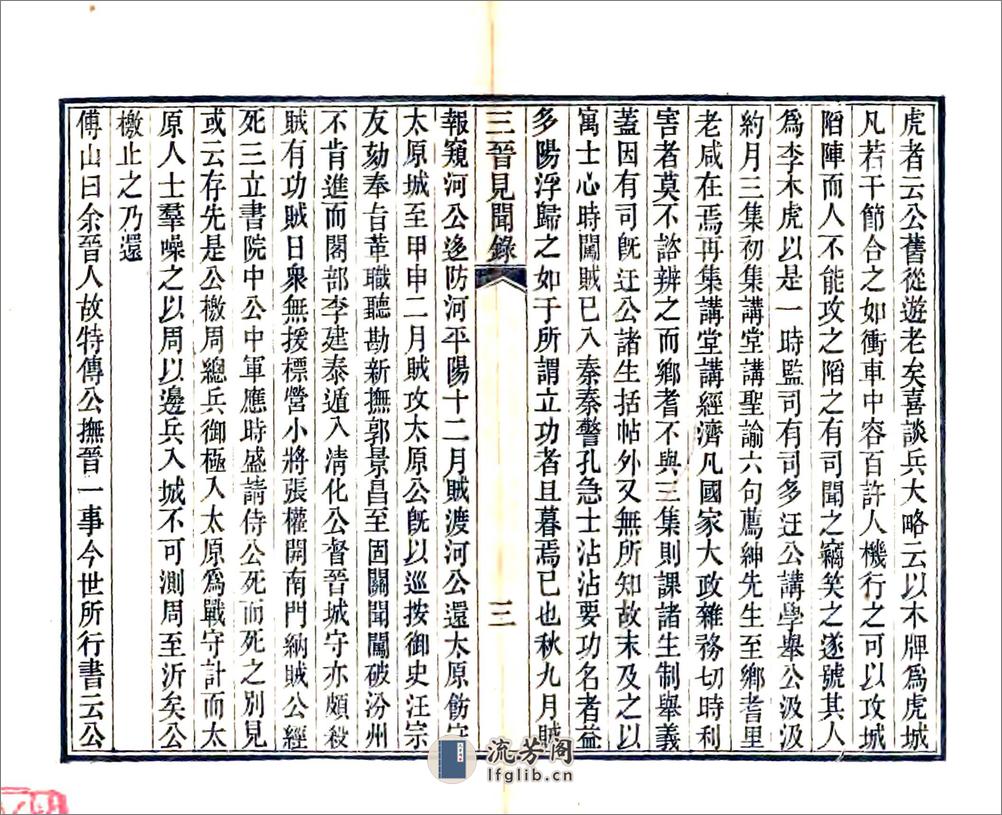 虎者云公舊從遊老矣喜談兵大略云以木牌爲虎城
凡若干節合之如衝車中容百許人機行之可以攻城
陷陣而人不能攻之陷之有司聞之竊笑之遂號其人
爲李木虎以是一時監司有司多迂公講學舉公汲汲
約月三集初集講堂講聖諭六句薦紳先生至鄉耆里
老咸在焉再集講堂講經濟凡國家大政雜務切時利
害者莫不諮辨之而鄉耆不與三集則課諸生制舉義
蓋因有司旣迂公諸生括帖外又無所知故末及之以
寓士心時闖賊已入秦秦警孔急士沾沾要功名者益
多陽浮歸之如于所謂立功者且暮焉已也秋九月賊
三晉見聞錄
三
報窺河公迻防河平陽十二月賊渡河公還太原飭守
太原城至甲申二月賊攻太原公旣以巡按御史汪宗
友劾奉旨革職聽勘新撫郭景昌至固關聞闖破汾州
不肯進而閣部李建泰遁入清化公督晉城守亦頗殺
賊有功賊日衆無援標營小將張權開南門納賊公經
死三立書院中公中軍應時盛請侍公死而死之別見
或云存先是公檄周總兵御極入太原爲戰守計而太
原人士羣噪之以周以邊兵入城不可測周至沂矣公
檄止之乃還
傅山曰余晉人故特傳公撫晉一事今世所行書云公
流芳閣
lfglib.cn